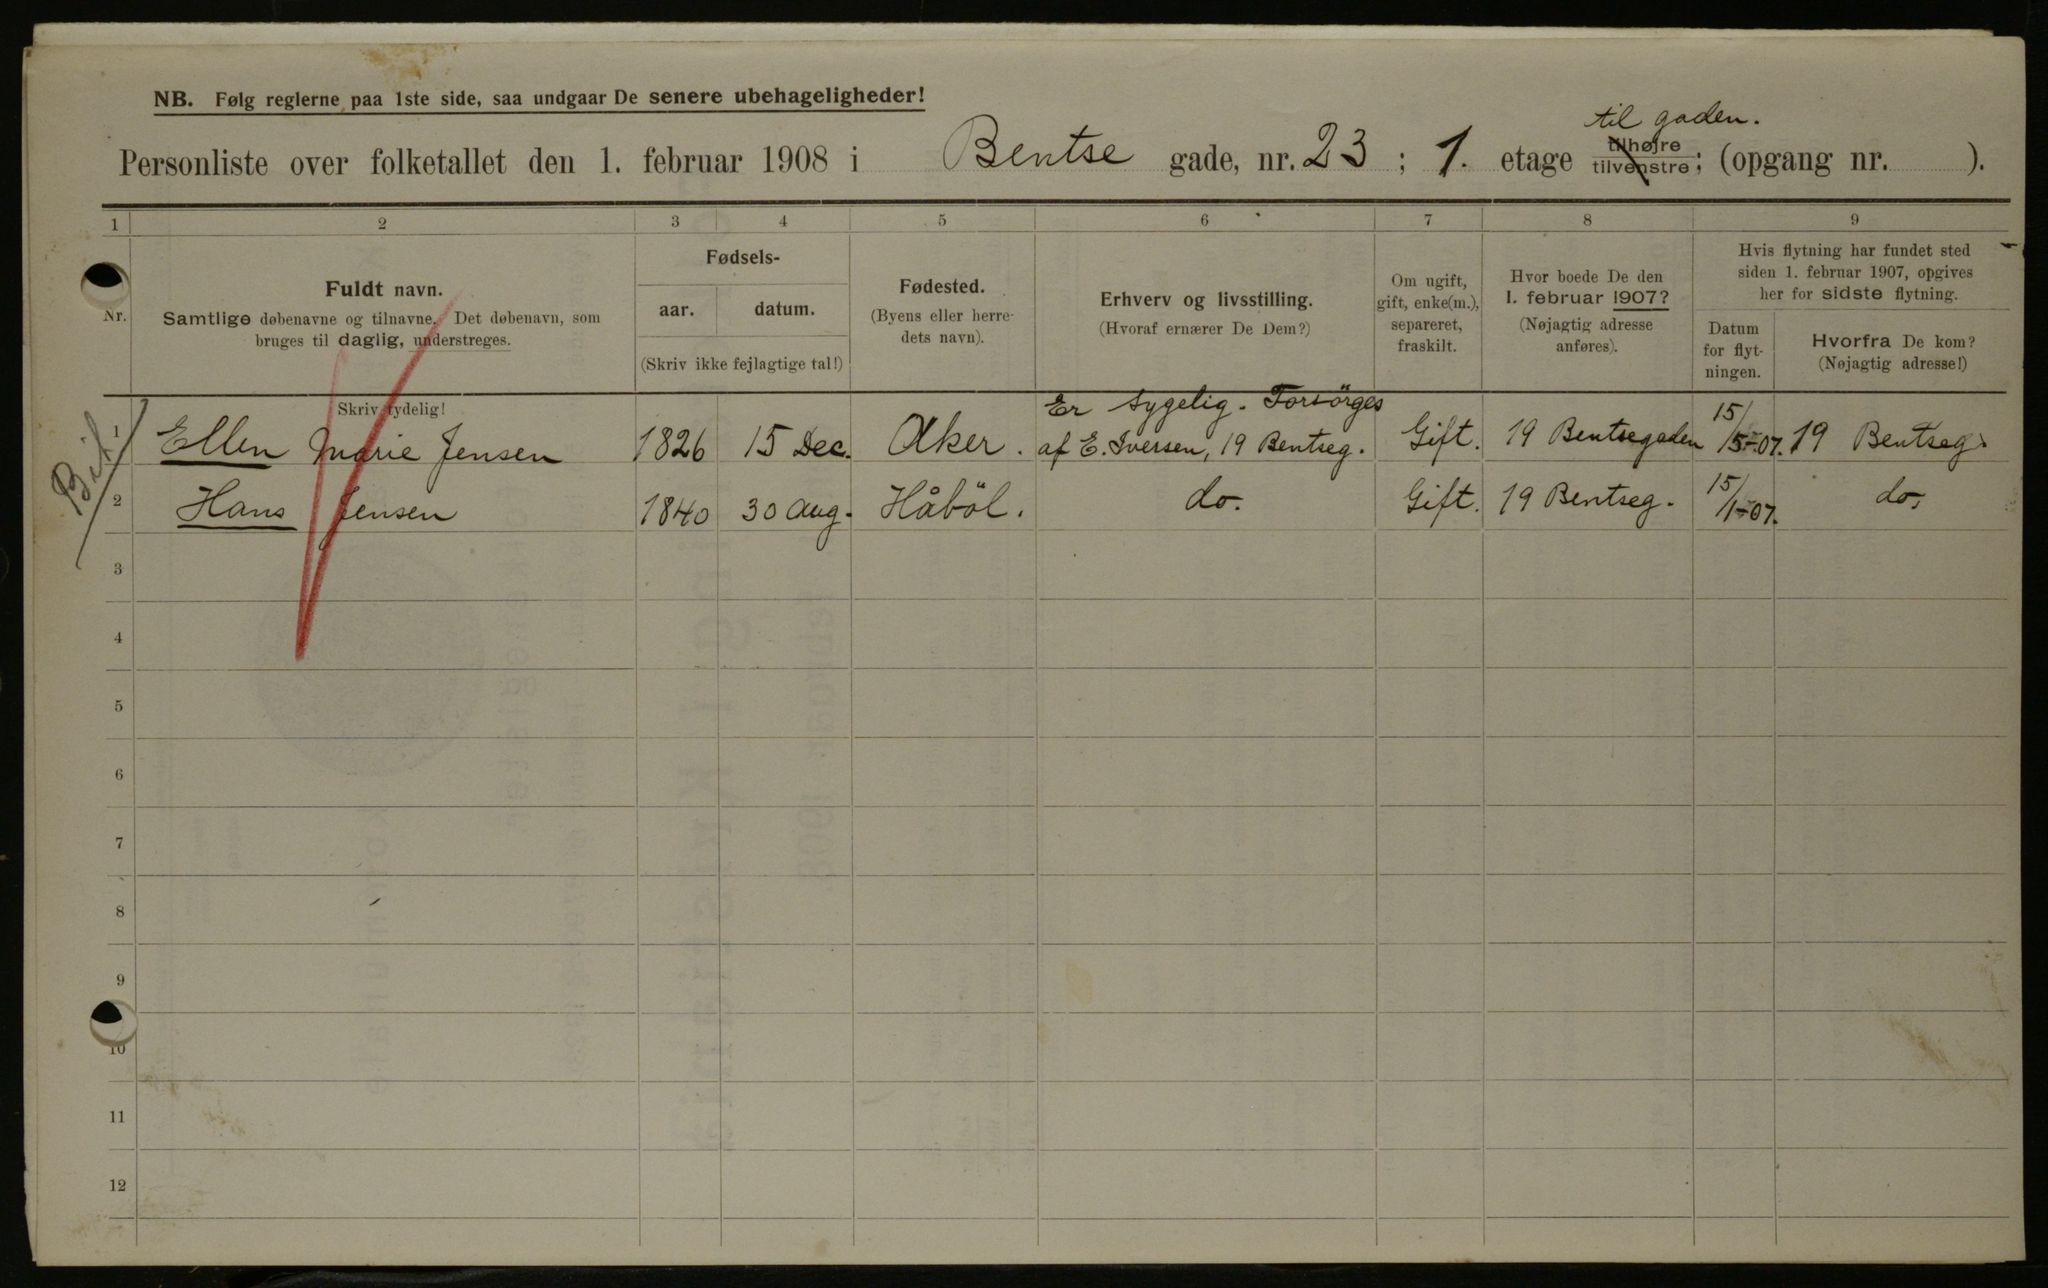 NB. Følg reglerne paa 1ste side, saa undgaar De senere ubehageligheder!
til gaden.
Personliste over folketallet den 1. februar 1908 i Bentse gade, nr. 23 ; 1. etage tilhøjre tilvenstre ; (opgang nr. ).
1 2 3 4 5 6 7 8 9
Nr.
Fuldt navn.
Samtlige døbenavne og tilnavne. Det døbenavn, som
bruges til daglig, understreges.
Skriv tydelig!
Fødsels-
aar. datum.
(Skriv ikke fejlagtige tal!)
Fødested.
(Byens eller herre-
dets navn).
Erhverv og livsstilling.
(Hvoraf ernærer De Dem?)
Om ugift,
gift, enke(m.),
separeret,
fraskilt.
Hvor boede De den
1. februar 1907?
(Nøjagtig adresse
anføres).
Hvis flytning har fundet sted
siden 1. februar 1907, opgives
her for sidste flytning.
Datum
for flyt-
ningen.
Hvorfra De kom?
(Nøjagtig adresse!)
Er sygelig. Forsörges
1 Ellen Marie Jensen 1826 15 Dec. Aker. af E. Iversen, 19 Bentseg. Gift. 19 Bentsegaden 15/5-07. 19 Bentseg.
2 Hans Jensen 1840 30 Aug. Håböl. do. Gift. 19 Bentseg. 15/1-07. do.
3
4
5
6
7
8
9
10
11
12